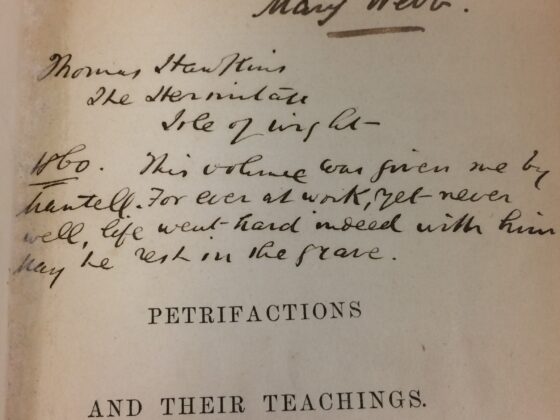 Mary Webb.
Thomas Hawkins
The Hermitage
Isle of Wight
1860. This volume was given me by
Mantell. For ever at work, yet never
well, life went hard indeed with him
May he rest in the grave.
PETRIFACTIONS
AND THEIR TEACHINGS.